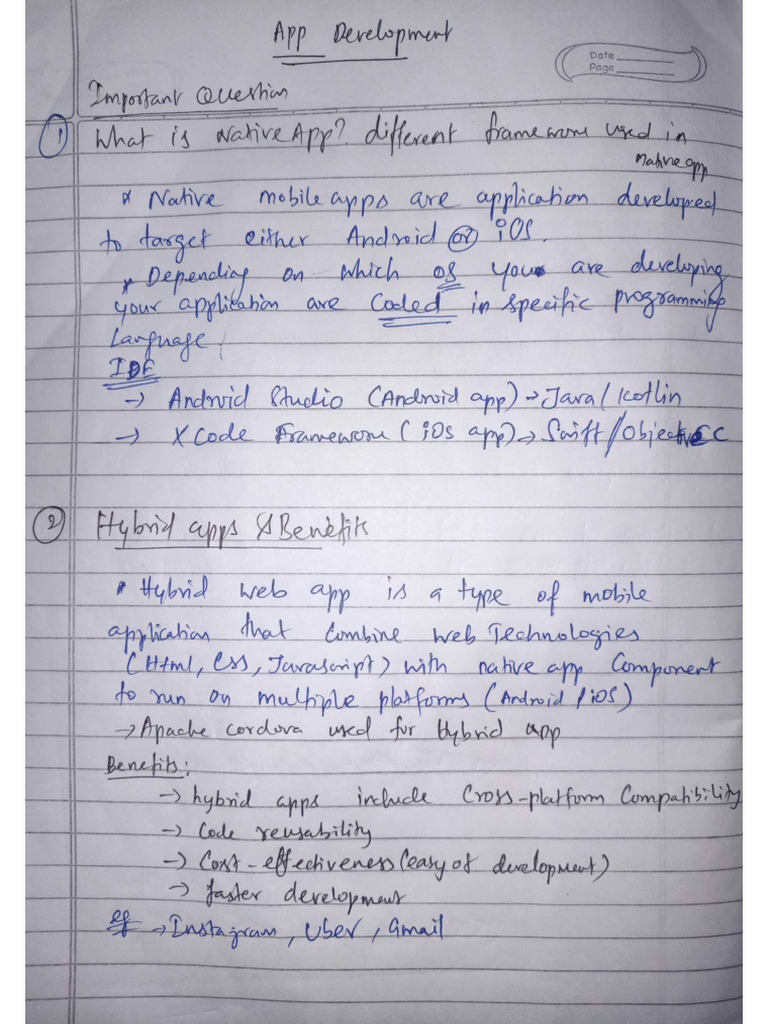 App Development
Date
Page
Important Question
1 What is Native App? different framework used in
native app
* Native mobile apps are application developed
to target either Android or iOS.
* Depending on which os you are developing
your application are Coded in specific programming
Language.
IDE
→ Android Studio (Android app) → Java/Kotlin
→ XCode Framework (iOS app) → Swift/Objective C
2 Hybrid apps & Benefits
* Hybrid web app is a type of mobile
application that combine web Technologies
(Html, Css, Javascript) with native app Component
to run on multiple platforms (Android / iOS)
→ Apache cordova used for Hybrid app
Benefits:
→ hybrid apps include Cross-platform Compatibility
→ Code reusability
→ Cost-effectiveness (easy of development)
→ faster development
eg → Instagram, Uber, Gmail